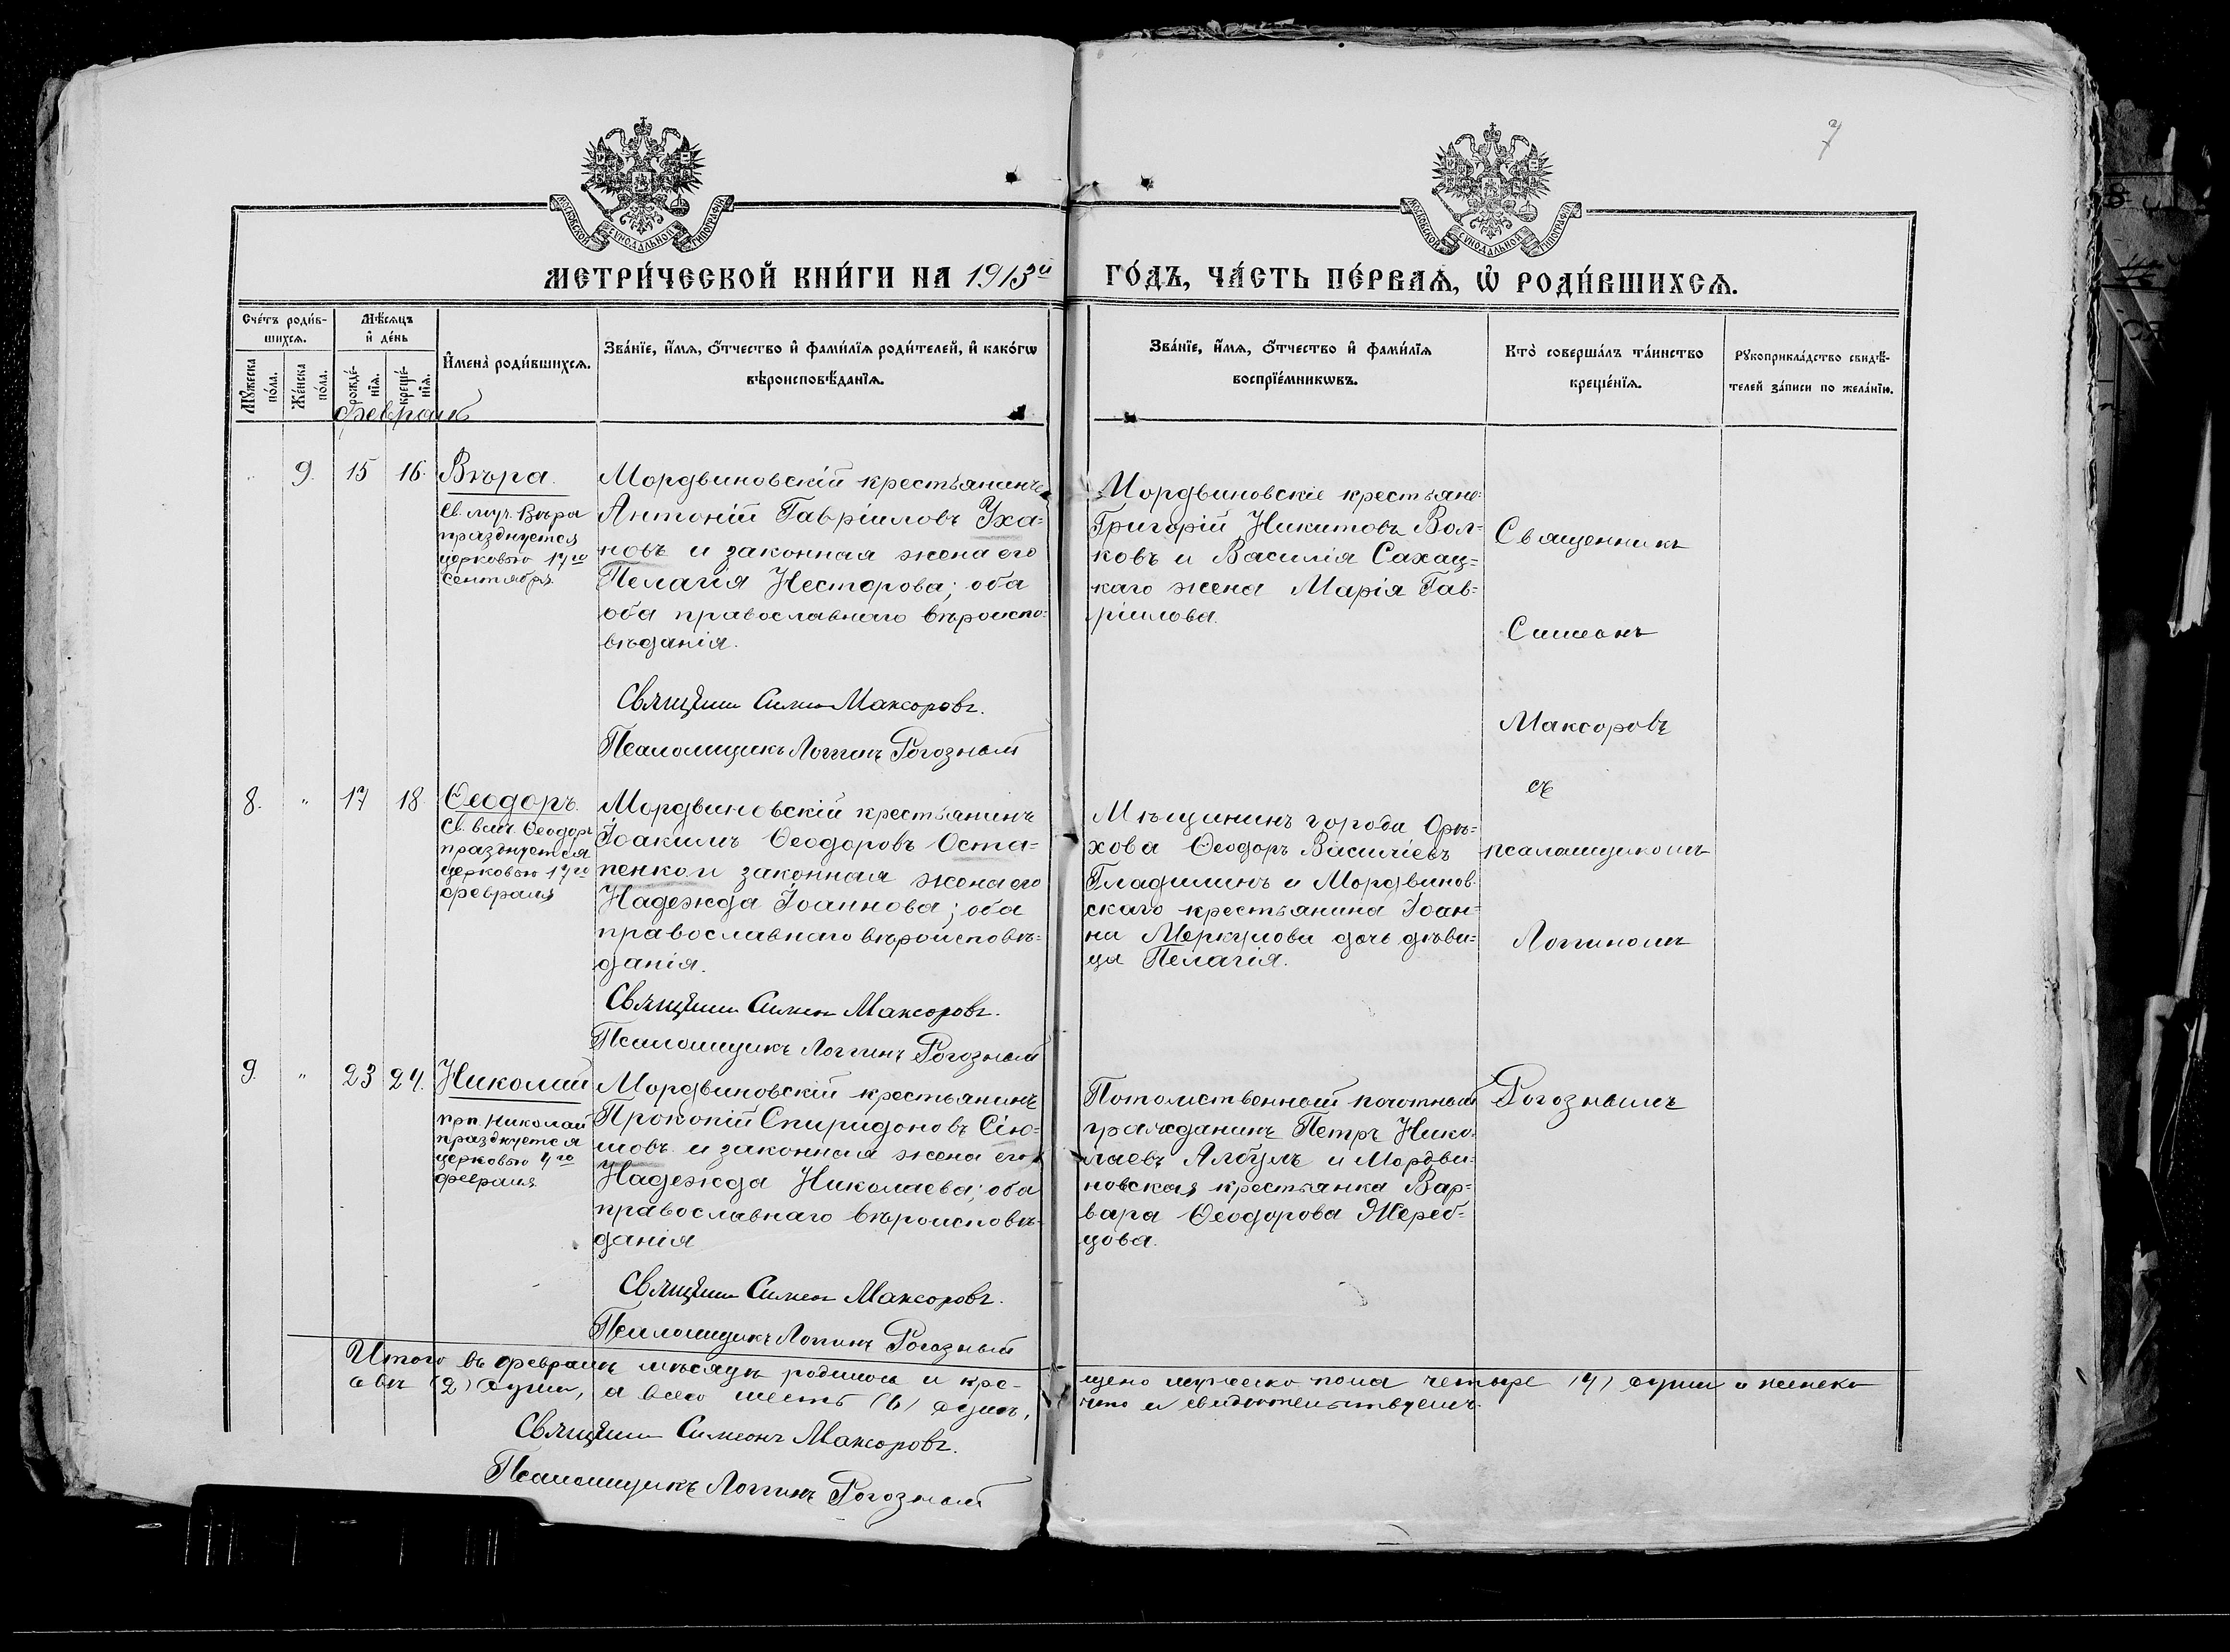 7
МОСКОВСКОЙ СѴНОДАЛЬНОЙ ТИПОГРАФІИ
МОСКОВСКОЙ СѴНОДАЛЬНОЙ ТИПОГРАФІИ
МЕТРИ́ЧЕСКОЙ КНИ́ГИ НА 1913й ГО́ДЪ, ЧА́СТЬ ПЕ́РВАѦ, Ѡ҆ РОДИ́ВШИХСѦ.
Сче́тъ роди́в-
шихсѧ.
Мꙋ́жеска по́ла.
Же́нска по́ла.
Мѣ́сѧцъ
и҆ де́нь
рожде́-нїѧ.
креще́-нїѧ.
И҆мена̀ роди́вшихсѧ.
Зва́нїе, и҆́мѧ, ѻ҆́тчество и҆ фами́лїѧ роди́телей, и҆ како́гѡ
вѣроисповѣ́данїѧ.
Зва́нїе, и҆́мѧ, ѻ҆́тчество и҆ фами́лїѧ
воспрїе́мникѡвъ.
Кто̀ соверша́лъ та́инство
креще́нїѧ.
Рꙋкоприкла́дство свидѣ́-
телей за́писи по жела́нїю.
Февраль
" 9. 15 16. Вѣра.
Св. муч. Вѣра
празднуется
церковью 17го
сентября.
Мордвиновскій крестьянинъ
Антоній Гавріиловъ Уха=
новъ и законная жена его
Пелагія Несторова; оба
оба православнаго вѣроиспо=
вѣданія.
Священник Симеон Максоровъ.
Псаломщикъ Логгинъ Рогозный
Мордвиновскіе крестьяне:
Григорій Никитовъ Вол=
ковъ и Василія Сахац=
каго жена Марія Гав=
ріилова.
Священникъ
Симеонъ
Максоровъ
съ
псаломщикомъ
Логгиномъ
Рогознымъ
8. " 17 18. Ѳеодоръ.
Св. влмч. Ѳеодоръ
празднуется
церковью 17го
февраля
Мордвиновскій крестьянинъ
Іоакимъ Ѳеодоровъ Оста=
пенко и законная жена его
Надежда Іоаннова; оба
православнаго вѣроисповѣ=
данія.
Священник Симеон Максоровъ.
Псаломщикъ Логгинъ Рогозный
Мѣщанинъ города Орѣ=
хова Ѳеодоръ Василіевъ
Гладилинъ и Мордвинов
скаго крестьянина Іоан=
на Меркулова дочь дѣви=
ца Пелагія.
9. " 23 24. Николай
прп. Николай
празднуется
церковью 4го
февраля
Мордвиновскій крестьянинъ
Прокопій Спиридоновъ Сію=
шовъ и законная жена его
Надежда Николаева; оба
православнаго вѣроисповѣ=
данія
Священник Симеон Максоровъ.
Псаломщикъ Логгинъ Рогозный
Потомственный почотный
гражданинъ Петръ Нико=
лаевъ Албулъ и Мордви=
новская крестьянка Вар=
вара Ѳеодорова Жереб=
цова.
Итого въ февралѣ мѣсяцѣ родилось и кре-щено мужеска пола четыре (4) души и женска
двѣ (2) души, а всего шесть (6) душъ, что и свидѣтельствуемъ.
Священник Симеонъ Максоровъ.
Псаломщикъ Логгинъ Рогозный